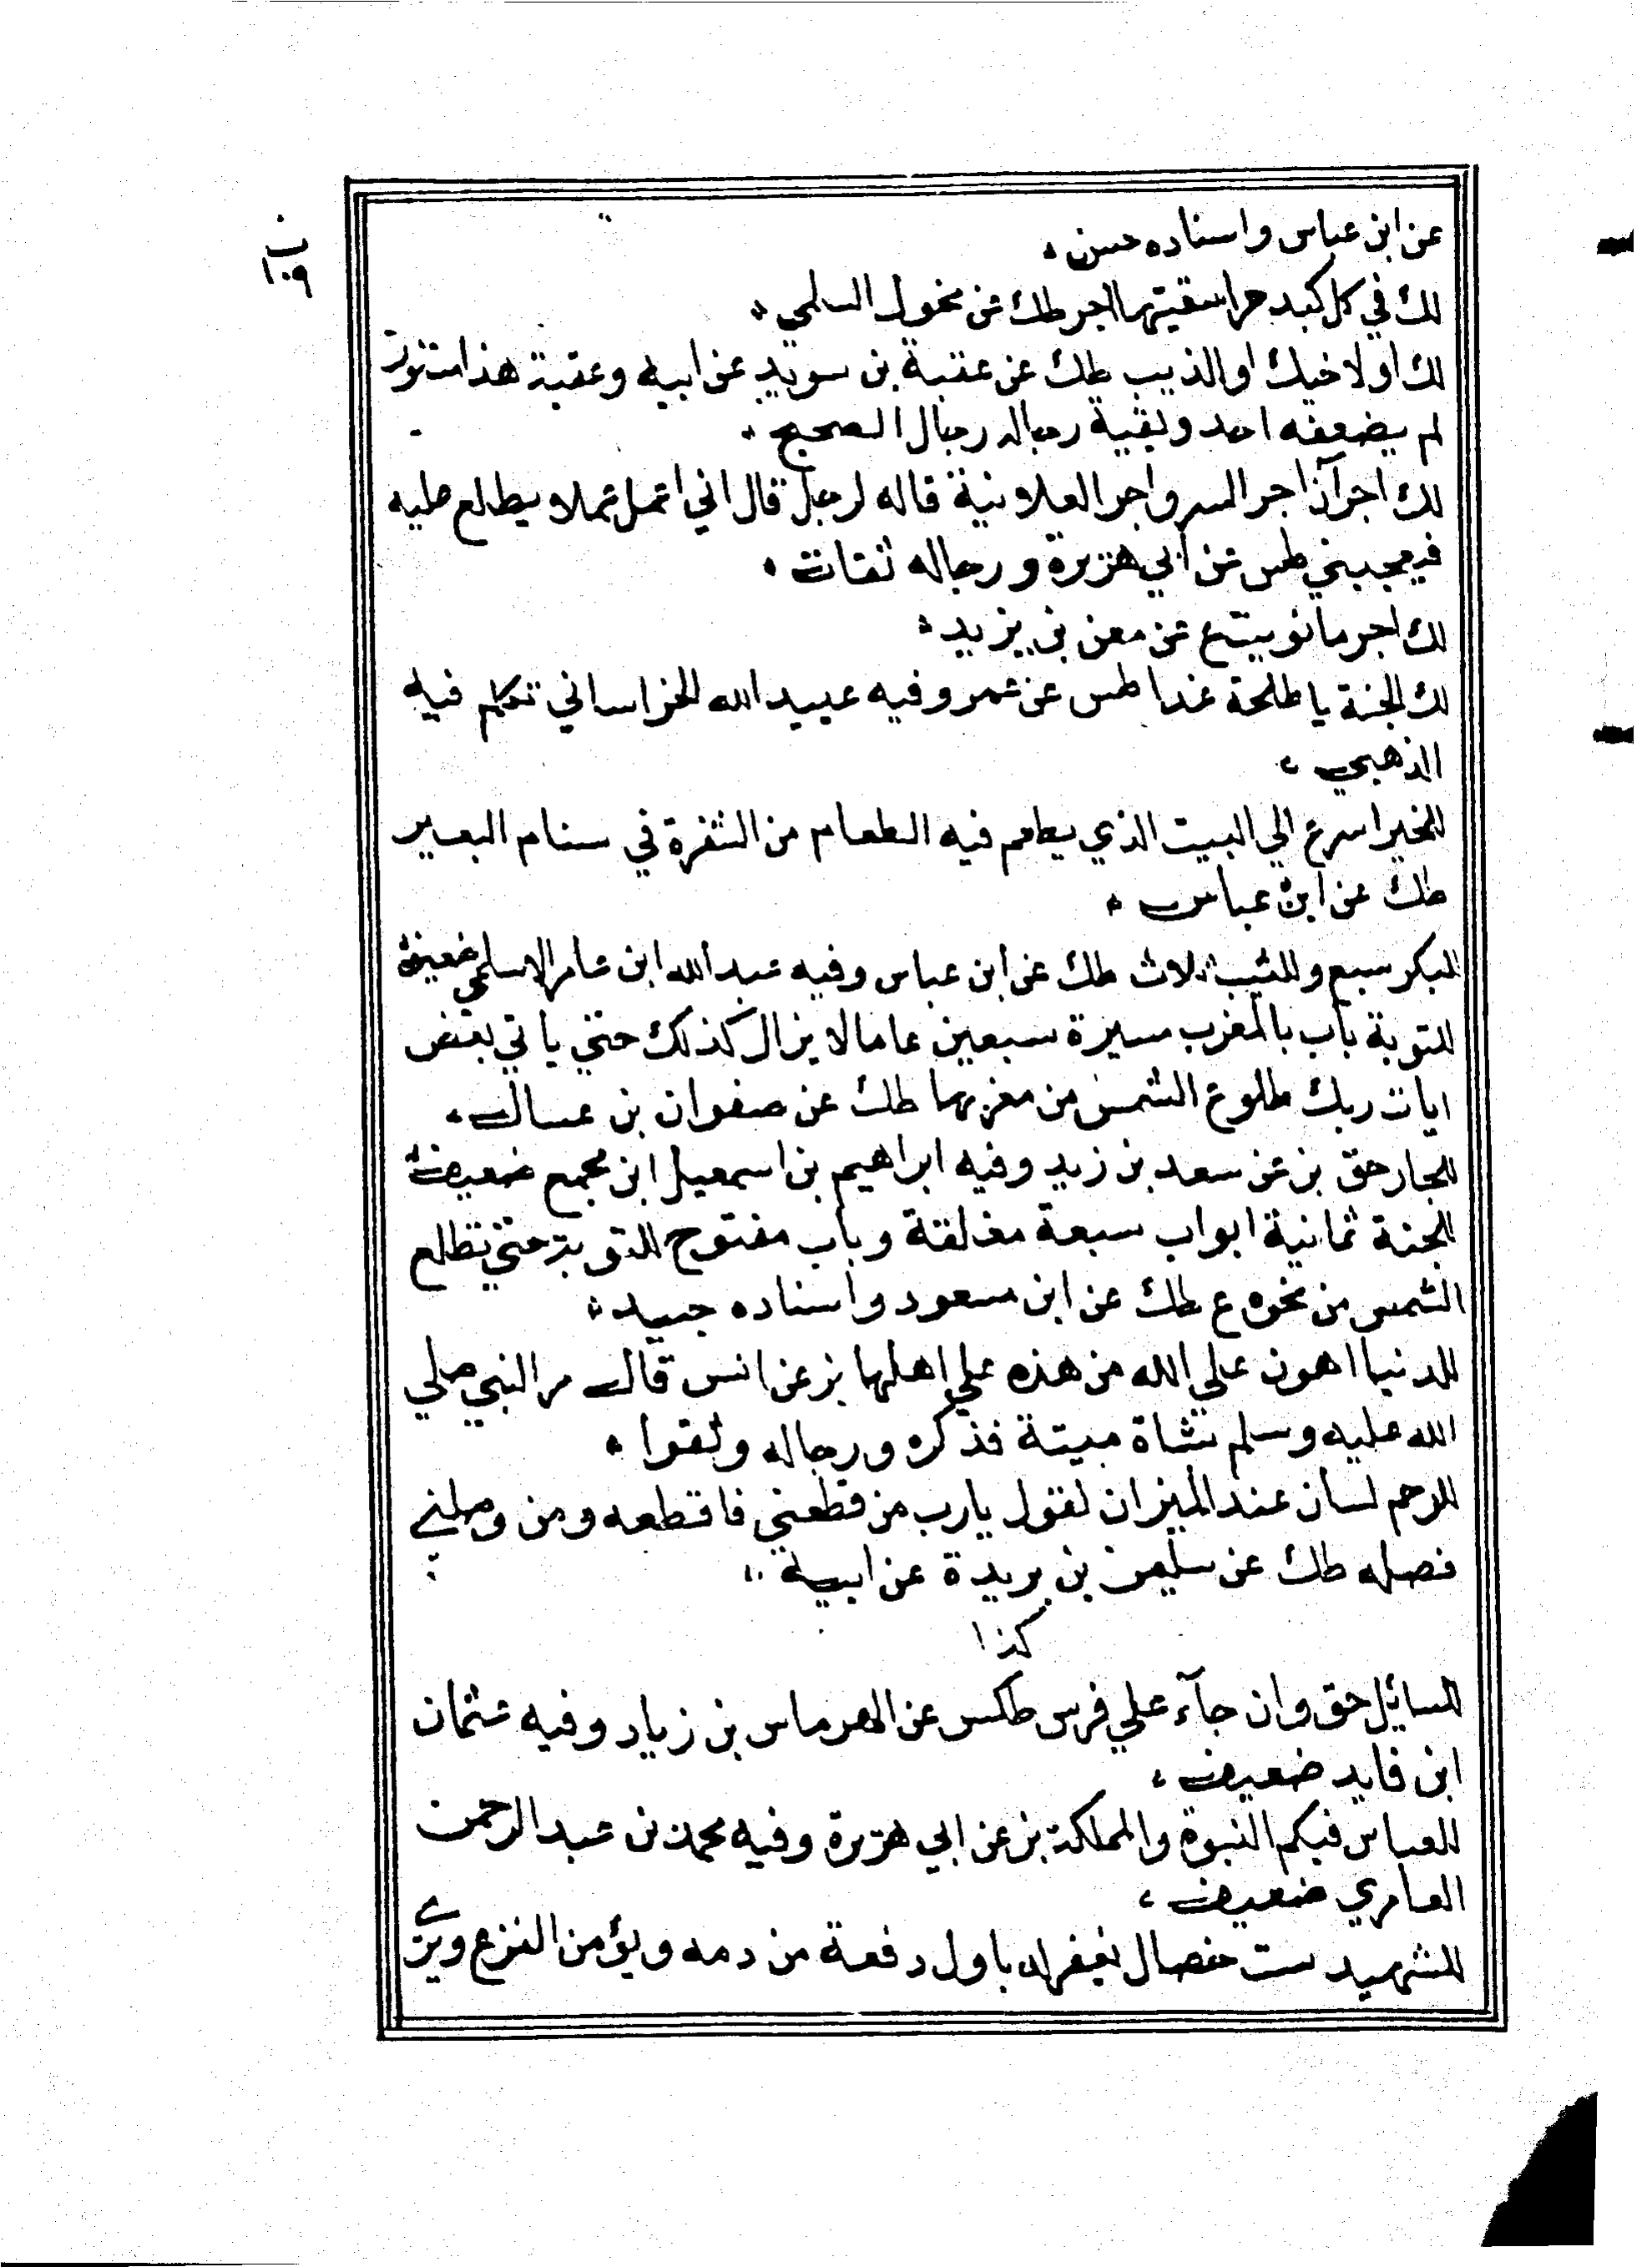 ب
١٠٩
عن ابن عباس واسناده حسن
لك في كل كبد حرا سقيتها اجر طك عن مخول السلمي
لك او لاخيك او الذيب طك عن عقبة بن سويد عن ابيه وعقبة هذا مستور
لم يضعفه احد وبقية رجاله رجال الصحيح
لك اجران اجر السر واجر العلانية قاله لرجل قال اني اعمل عملا يطلع عليه
فيعجبني طس عن ابي هريرة ورجاله ثقات
لك اجر ما نويت ع عن معن بن يزيد
لك الجنة يا طلحة غدا طس عن عمر وفيه عبيد الله الخراساني تكلم فيه
الذهبي
للخير اسرع الي البيت الذي يطعم فيه الطعام من الشفرة في سنام البعير
طك عن ابن عباس
للبكر سبع وللثيب ثلاث طك عن ابن عباس وفيه عبد الله ابن عامر الاسلمي ضعيف
للتوبة باب بالمغرب مسيرة سبعين عاما لا يزال كذلك حتي ياتي بعض
ايات ربك طلوع الشمس من مغربها طك عن صفوان بن عسال
للجار حق بز عن سعد بن زيد وفيه ابراهيم بن اسمعيل ابن مجمع ضعيف
للجنة ثمانية ابواب سبعة مغلقة وباب مفتوح للتوبة حتي تطلع
الشمس من نحوه ع طك عن ابن مسعود واسناده جيد
للدنيا اهون علي الله من هذه علي اهلها بز عن انس قال مر النبي صلي
الله عليه وسلم بشاة ميتة فذكره ورجاله وثقوا
للرحم لسان عند الميزان تقول يارب من قطعني فاقطعه ومن وصلني
فصله طك عن سليمن بن بريدة عن ابيه
كذا
للسايل حق وان جآء علي فرس طكس عن الهرماس بن زياد وفيه عثمان
ابن فايد ضعيف
للعباس فيكم النبوة والمملكة بز عن ابي هريرة وفيه محمد بن عبد الرحمن
العامري ضعيف
للشهيد ست خصال يغفر له باول دفعة من دمه ويؤمن الفزع ويري